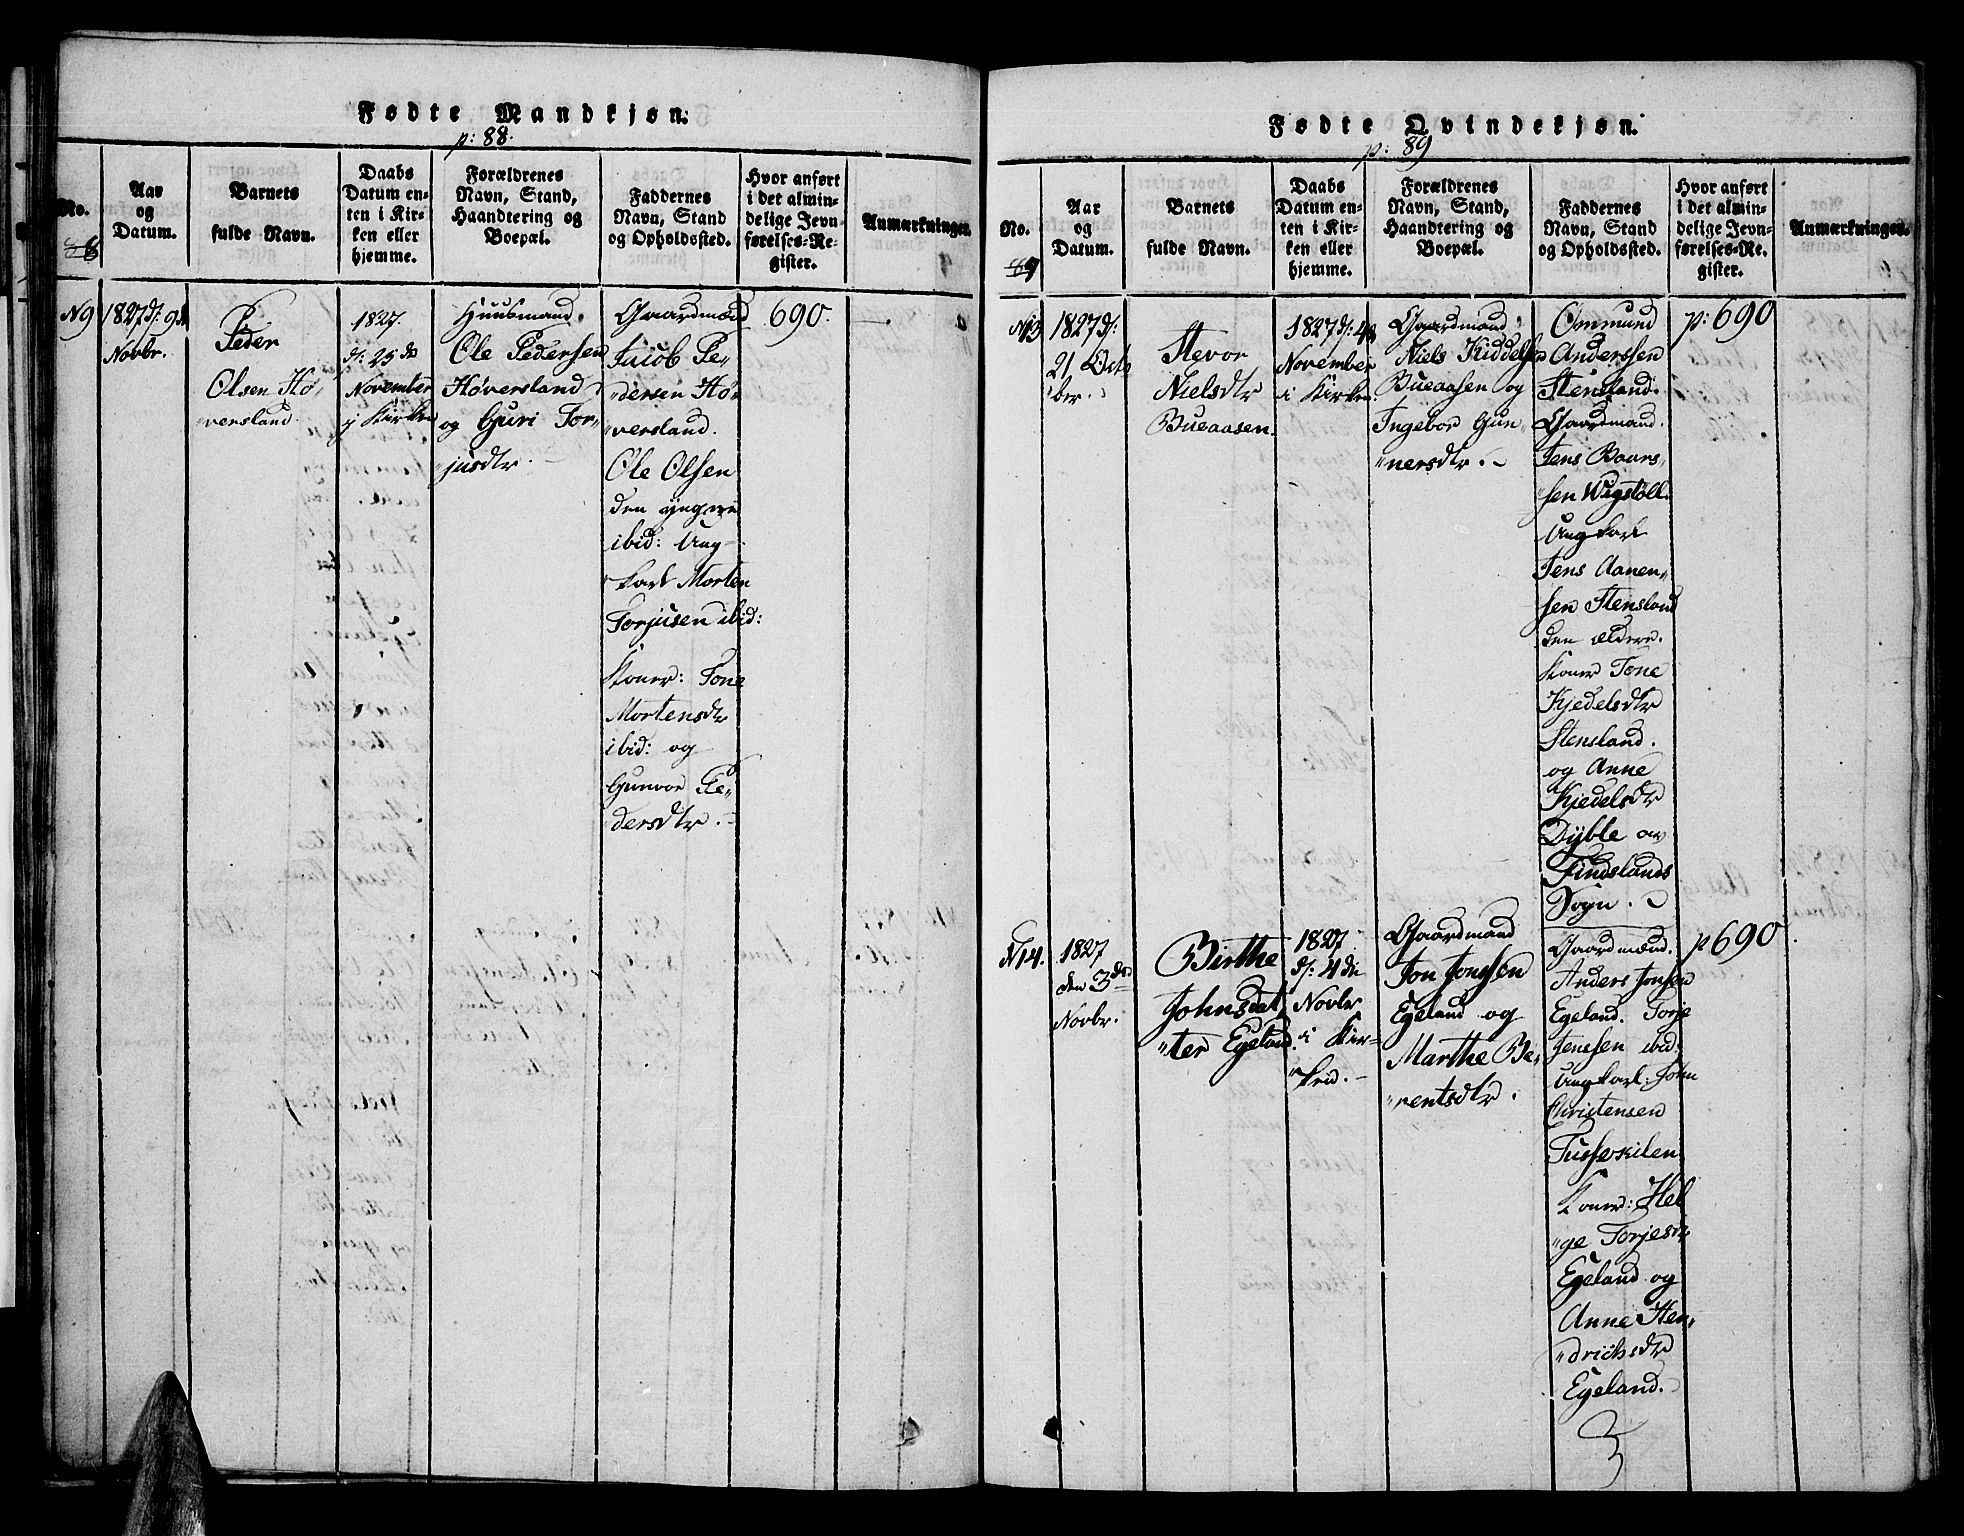 Fødte Mandkjøn.
p: 88.
No.
88
Aar
og
Datum.
Barnets
fulde Navn.
Daabs
Datum en-
ten i Kir-
ken eller
hjemme.
Forældrenes
Navn, Stand,
Haandtering og
Boepæl.
Faddernes
Navn, Stand
og Opholdssted.
Hvor anført
i det almin-
delige Jevn-
førelses-Re-
gister.
Anmærkninger.
N 9
1827 d: 9de
Novbr.
Peder
Olsen Hø-
versland
1827.
d: 25 de
November
j Kirken
Huusmand.
Ole Pedersen
Høversland
og Guri Tor-
jusdtr.
Gaardmænd
Jacob Pe-
dersen Hø-
versland.
Ole Olsen
den yngre
ibid: Ung-
karl Morten
Torjusen ibid:
Koner: Tone
Mortensdtr
ibid: og
Gunvor Pe-
dersdtr.
690.
Fødte Qvindekjøn.
p: 89
No.
89
Aar
og
Datum.
Barnets
fulde Navn.
Daabs
Datum en-
ten i Kir-
ken eller
hjemme.
Forældrenes
Navn, Stand,
Haandtering og
Boepæl.
Faddernes
Navn, Stand
og Opholdssted.
Hvor anført
i det almin-
delige Jevn-
førelses-Re-
gister.
Anmærkninger.
N 13
1827 d:
21 Octo
ber.
Stevor
Nielsdtr
Bueaasen.
1827 d: 4de
November
i Kirken
Gaardmand
Niels Kiddelsen
Bueaasen og
Ingebor Gun
nersdtr.
Ommund
Anderssen
Stensland.
Gaardmand.
Jens Baars-
sen Wigstøll.
Ungkarl
Jens Aanen-
sen Stensland
den ældere.
Koner Tone
Kjedelsdtr
Stensland.
og Anne
Kjedelsdtr
Dyble av
Findslands
Sogn.
p: 690
N 14.
1827
den 3de
Novbr.
Birthe
Johnsdat
ter Egeland.
1827
d: 4 de
Novbr
i Kir-
ken.
Gaardmand
Jon Jonssen
Egeland og
Marthe Be-
rentsdtr.
Gaardmænd.
Anders Jonsen
Egeland. Torje
Jenssen ibid:
Ungkarl: John
Christensen
Tusseskilen
Koner: Hel
ge Torjesdtr
Egeland og
Anne Hen-
drichsdtr
Egeland.
p 690